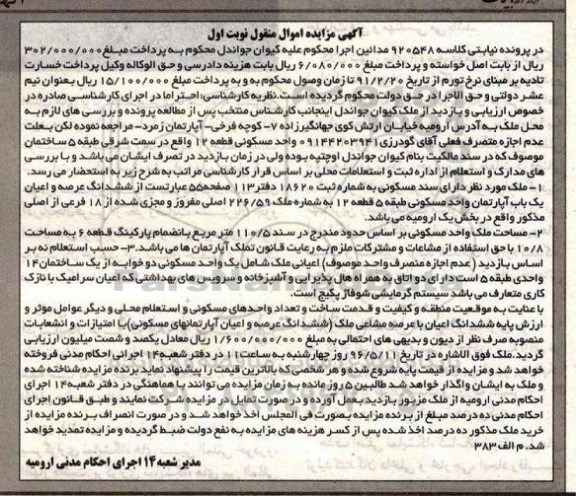 آگهی مزایده اموال منقول نوبت اول
در پرونده نیابتی کلاسه ۹۲۰۵۴۸ مدائین اجرا محکوم علیه کیوان جواندل محکوم به پرداخت مبلغ ۳۰۲/۰۰۰/۰۰۰
ریال از بابت اصل خواسته و پرداخت مبلغ ۶/۰۸۰/۰۰۰ ریال بابت هزینه دادرسی و حق الوکاله وکیل پرداخت خسارت
تادیه بر مبنای نرخ تورم از تاریخ ۹۱/۲/۲۰ تا زمان وصول محکوم به و به پرداخت مبلغ ۱۵/۱۰۰/۰۰۰ ریال بعنوان نیم
عشر دولتی و حق الاجرا در حق دولت محکوم گردیده است. نظریه کارشناسی: احتراما در اجرای کارشناسی صادره در
خصوص ارزیابی و بازدید از ملک کیوان جواندل اینجانب کارشناس منتخب پس از مطالعه پرونده و بررسی های لازم به
محل ملک به آدرس ارومیه خیابان ارتش کوی جهانگیرزاده ۷- کوچه فرخی- آپارتمان زمرد- مراجعه نموده لکن بعلت
عدم اجازه متصرف فعلی آقای گودرزی ۰۹۱۴۴۲۰۳۹۴۱ واحد مسکونی قطعه ۱۲ واقع در سمت شرقی طبقه ۵ ساختمان
موصوف که در سند مالکیت بنام کیوان جواندل اوچتپه بوده ولی در زمان بازدید در تصرف ایشان می باشد و با بررسی
های مدارک و استعلام از اداره ثبت و استعلامات محلی بر اساس قرار کارشناسی مراتب به شرح زیر به استحضار می رسد.
۱- ملک مورد نظر دارای سند مسکونی به شماره ثبت ۱۸۶۲۰ دفتر ۱۱۳ صفحه ۵۵ عبارتست از ششدانگ عرصه و اعیان
یک باب آپارتمان واحد مسکونی طبقه ۵ قطعه ۱۲ به شماره ملک ۲۲۶/۵۹ اصلی مفروز و مجزی شده از ۱۸ فرعی از اصلی
مذکور واقع در بخش یک ارومیه می باشد.
۲- مساحت ملک واحد مسکونی بر اساس حدود مندرج در سند ۱۱۰/۵ متر مربع بانضمام پارکینگ قطعه ۶ به مساحت
۱۰/۸ با حق استفاده از مشاعات و مشترکات ملزم به رعایت قانون تملک آپارتمان ها می باشد. ۳- حسب استعلام نه بر
اساس بازدید (عدم اجازه متصرف واحد موصوف) اعیانی ملک شامل یک واحد مسکونی دو خوابه از یک ساختمان ۱۴
واحدی طبقه ۵ است دارای دو اتاق به همراه هال پذیرایی و آشپزخانه و سرویس های بهداشتی که اعیان سرامیک با نازک
کاری متعارف می باشد سیستم گرمایشی شوفاژ پکیج است.
با عنایت به موقعیت منطقه و کیفیت و قدمت ساخت و تعداد واحدهای مسکونی و استعلام محلی و دیگر عوامل موثر و
ارزش پایه ششدانگ اعیان با عرصه مشاعی ملک (ششدانگ عرصه و اعیان آپارتمانهای مسکونی) با امتیازات و انشعابات
منصوبه صرف نظر از دیون و بدیهی های احتمالی به مبلغ ۱/۶۰۰/۰۰۰/۰۰۰ ریال معادل یکصد و شصت میلیون ارزیابی
گردید. ملک فوق الاشاره در تاریخ ۹۶/۵/۱۱ روز چهارشنبه به ساعت ۱۱ در دفتر شعبه ۱۴ اجرائی احکام مدنی فروخته
خواهد شد و مزایده از قیمت پایه شروع شده و هر شخصی که بالاترین قیمت را پیشنهاد نماید برنده مزایده شناخته شده
و ملک به ایشان واگذار خواهد شد طالبین ۵ روز مانده به زمان مزایده می توانند با هماهنگی در دفتر شعبه ۱۴ اجرای
احکام مدنی ارومیه از ملک مزبور بازدید بعمل آورده و در صورت تمایل در مزایده شرکت نمایند و طبق قانون اجرای
احکام مدنی ده درصد مبلغ از برنده مزایده بصورت فی المجلس اخذ خواهد شد و در صورت انصراف برنده مزایده از
خرید ملک مذکور ده درصد اخذ شده پس از کسر هزینه های مزایده به نفع دولت ضبط گردیده و مزایده تمدید خواهد
شد. م الف ۳۸۳
مدیر شعبه ۱۴ اجرای احکام مدنی ارومیه